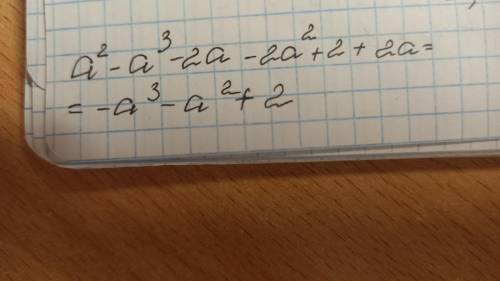 a² - a³ - 2a - 2a² + 2 + 2a =
= -a³ - a² + 2